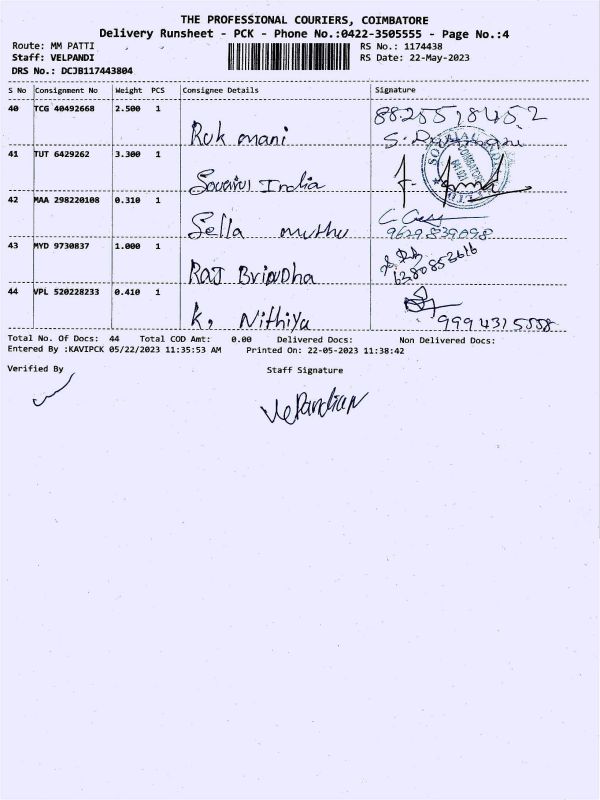 THE PROFESSIONAL COURIERS, COIMBATORE
Delivery Runsheet - PCK - Phone No.:0422-3505555 - Page No.:4
Route: MM PATTI RS No.: 1174438
Staff: VELPANDI RS Date: 22-May-2023
DRS No.: DCJB117443804
S No Consignment No Weight PCS Consignee Details Signature
40 TCG 40492668 2.500 1 Ruk mani 8825518452
41 TUT 6429262 3.300 1 India
42 MAA 298220108 0.310 1 Sella muthu 9629839098
43 MYD 9730837 1.000 1 RAJ BrinDha 6380853616
44 VPL 520228233 0.410 1 K, Nithiya 9994315558
Total No. Of Docs: 44 Total COD Amt: 0.00 Delivered Docs: Non Delivered Docs:
Entered By :KAVIPCK 05/22/2023 11:35:53 AM Printed On: 22-05-2023 11:38:42
Verified By Staff Signature
VelPandian